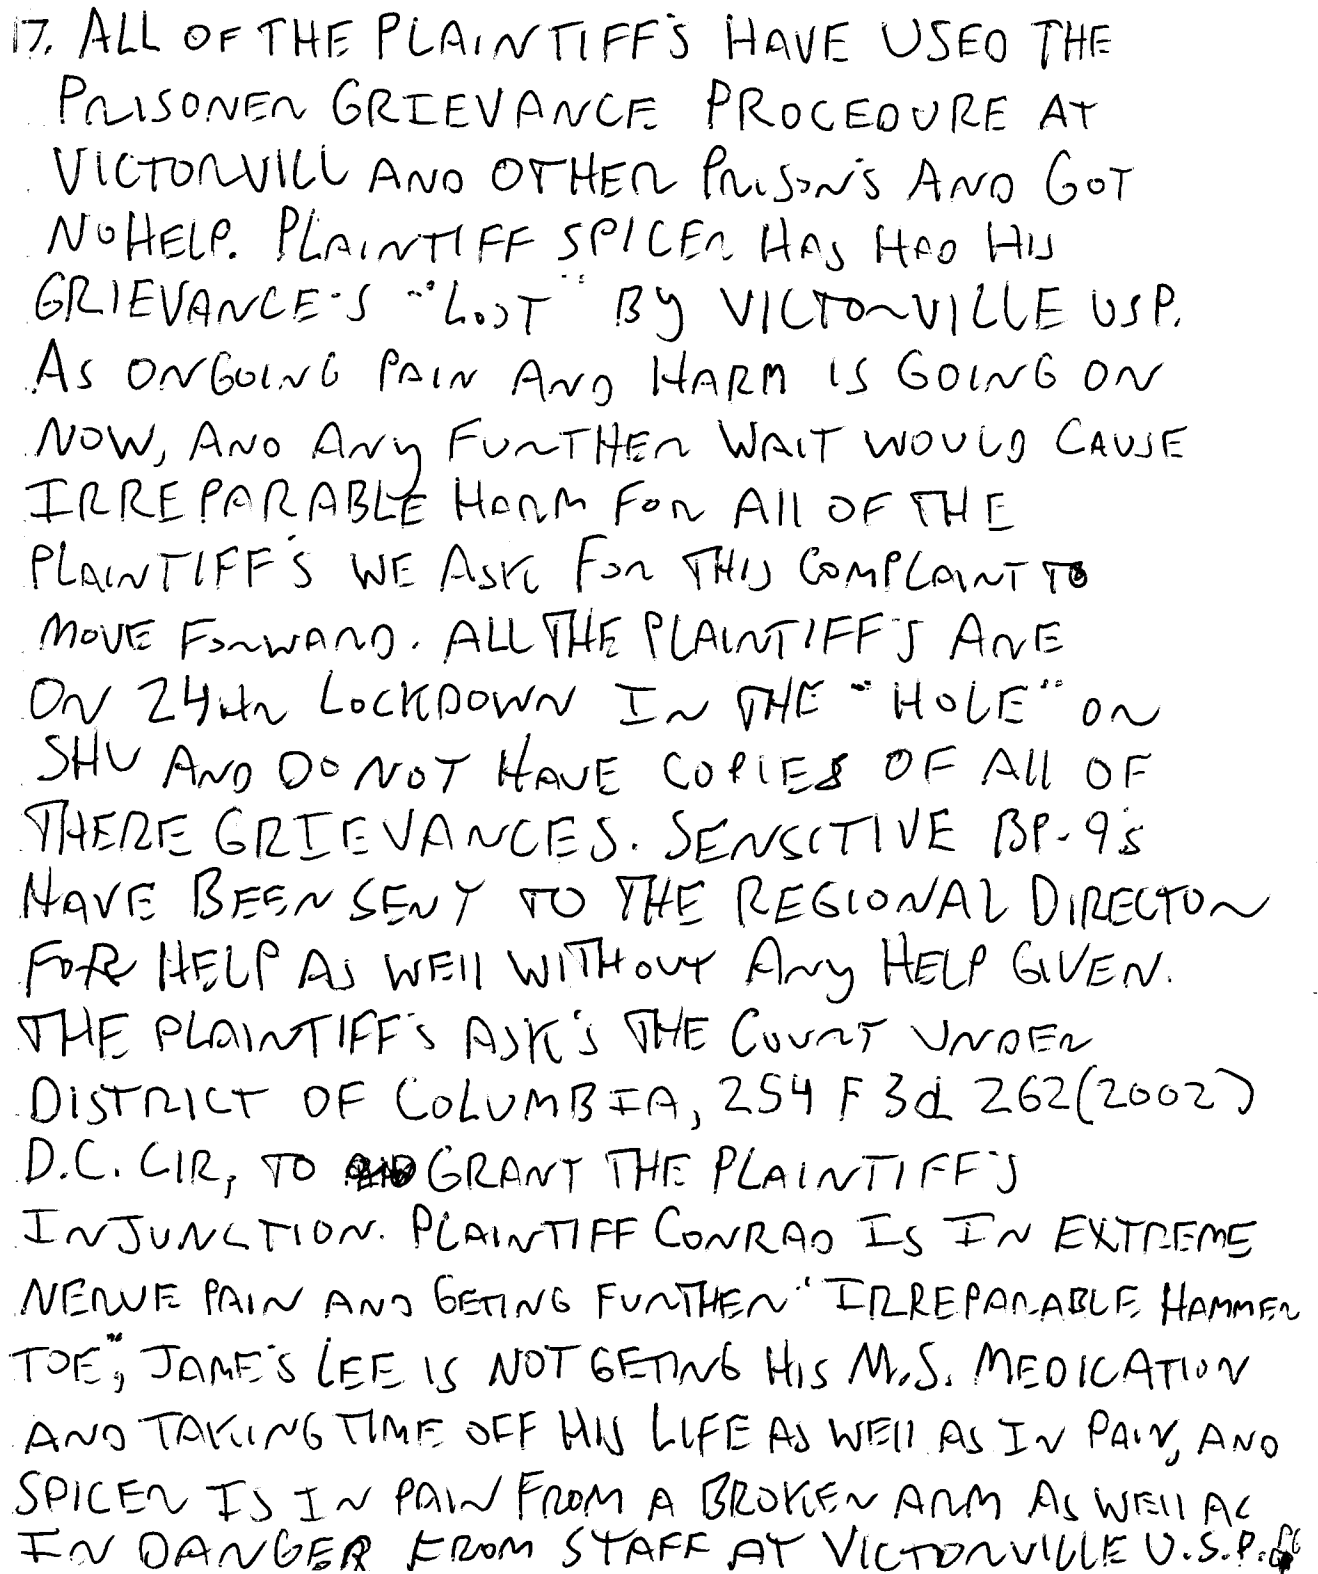 17. ALL OF THE PLAINTIFF'S HAVE USED THE
PRISONER GRIEVANCE PROCEDURE AT
VICTORVILL AND OTHER PRISON'S AND GOT
NO HELP. PLAINTIFF SPICER HAS HAD HIS
GRIEVANCE'S "LOST" BY VICTORVILLE USP.
AS ONGOING PAIN AND HARM IS GOING ON
NOW, AND ANY FURTHER WAIT WOULD CAUSE
IRREPARABLE HARM FOR All OF THE
PLAINTIFF'S WE ASK FOR THIS COMPLAINT TO
MOVE FORWARD. ALL THE PLAINTIFF'S ARE
ON 24HR LOCKDOWN IN THE "HOLE" ON
SHU AND DO NOT HAVE COPIES OF All OF
THERE GRIEVANCES. SENSITIVE BP-9's
HAVE BEEN SENT TO THE REGIONAL DIRECTOR
FOR HELP AS WEll WITHOUT ANY HELP GIVEN.
THE PLAINTIFF'S ASK'S THE COURT UNDER
DISTRICT OF COLUMBIA, 254 F 3d 262 (2002)
D.C. CIR, TO GRANT THE PLAINTIFF'S
INJUNCTION. PLAINTIFF CONRAD IS IN EXTREME
NERVE PAIN AND GETING FURTHER "IRREPARABLE HAMMER
TOE", JAME'S LEE IS NOT GETING HIS M.S. MEDICATION
AND TAKING TIME OFF HIS LIFE AS WEll AS IN PAIN, AND
SPICER IS IN PAIN FROM A BROKEN ARM AS WEll AS
IN DANGER FROM STAFF AT VICTORVILLE U.S.P.